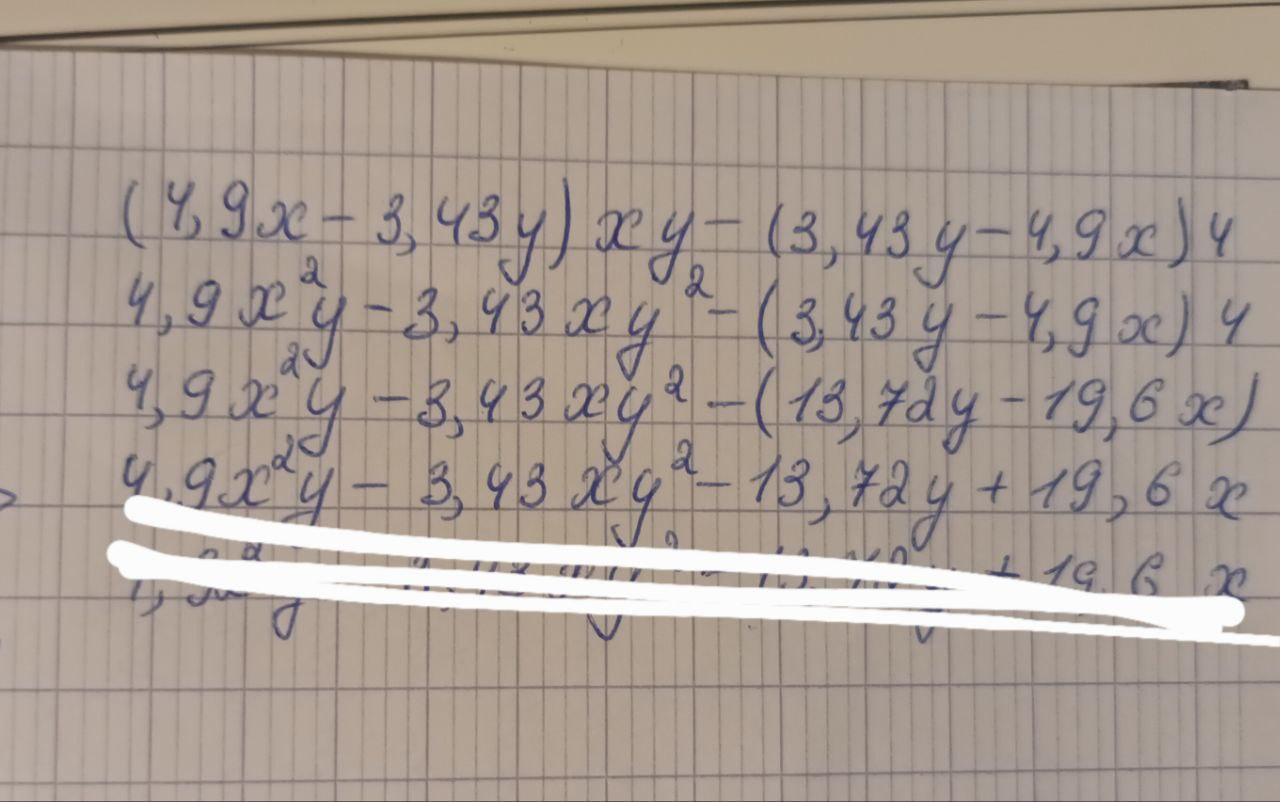 (4,9x - 3,43y) xy - (3,43y - 4,9x) 4
4,9x²y - 3,43xy² - (3,43y - 4,9x) 4
4,9x²y - 3,43xy² - (13,72y - 19,6x)
4,9x²y - 3,43xy² - 13,72y + 19,6x
+ 19,6 x